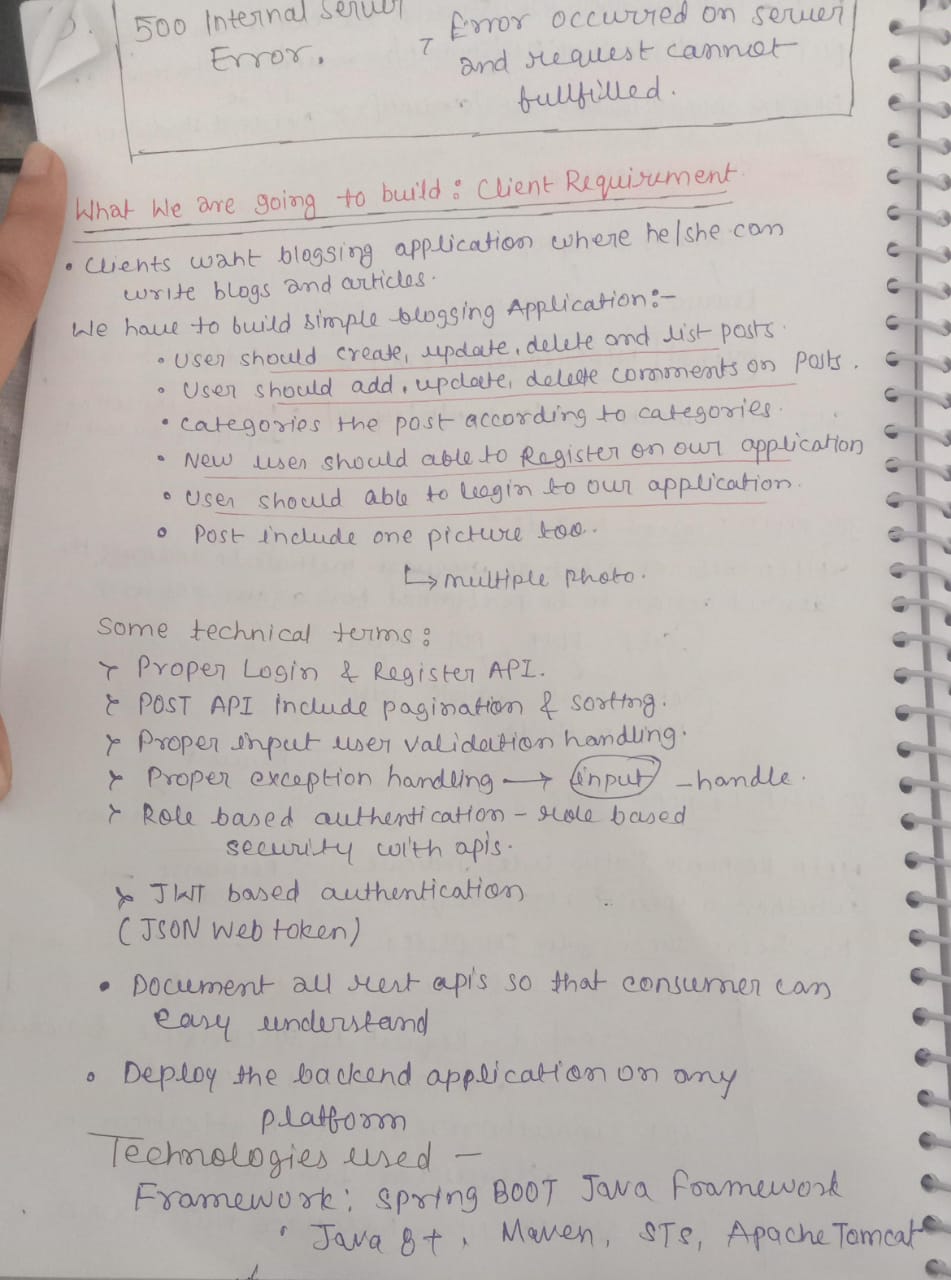 500 Internal Server
Error.
→ Error occurred on server
and request cannot
fullfilled.
What We are going to build: Client Requirement.
• Clients want blogging application where he/she can
write blogs and articles.
We have to build simple blogging Application:-
• User should create, update, delete and list posts.
• User should add, update, delete comments on posts.
• Categories the post according to categories.
• New user should able to Register on our application
• User should able to login to our application.
• Post include one picture too.
↳ multiple photo.
Some technical terms:
Proper Login & Register API.
POST API include pagination & sorting.
Proper input user validation handling.
Proper exception handling → input - handle.
Role based authentication - role based
security with apis.
JWT based authentication
(JSON Web token)
• Document all rest apis so that consumer can
easy understand
• Deploy the backend application on any
platform
Technologies used -
Framework: Spring BOOT Java Framework
• Java 8+, Maven, STS, Apache Tomcat